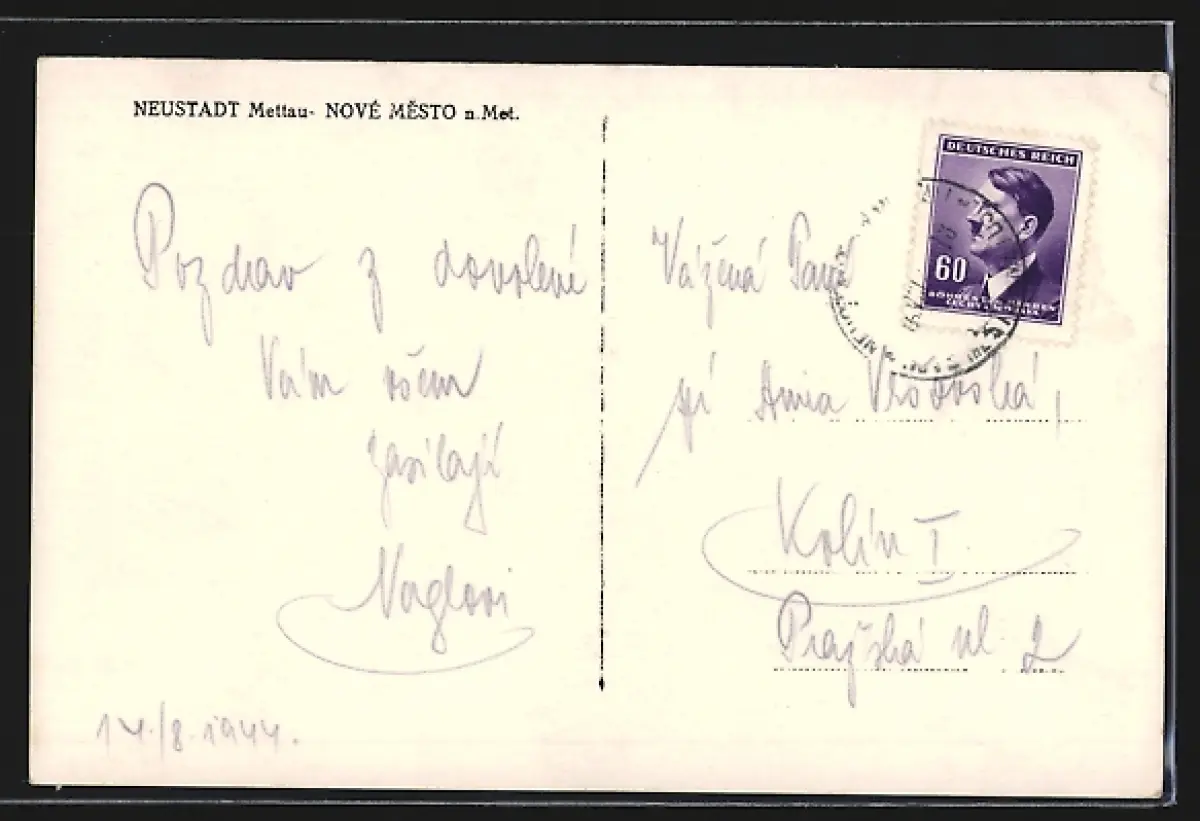 NEUSTADT Mettau- NOVÉ MĚSTO n.Met.
Pozdrav z dovolené
Vám všem
zasílají
Naglovi
14./8. 1944.
DEUTSCHES REICH
60
BÖHMEN UND MÄHREN
ČECHY A MORAVA
Vážená Paní
pí Anna Vršovská,
Kolín I.
Pražská ul 2